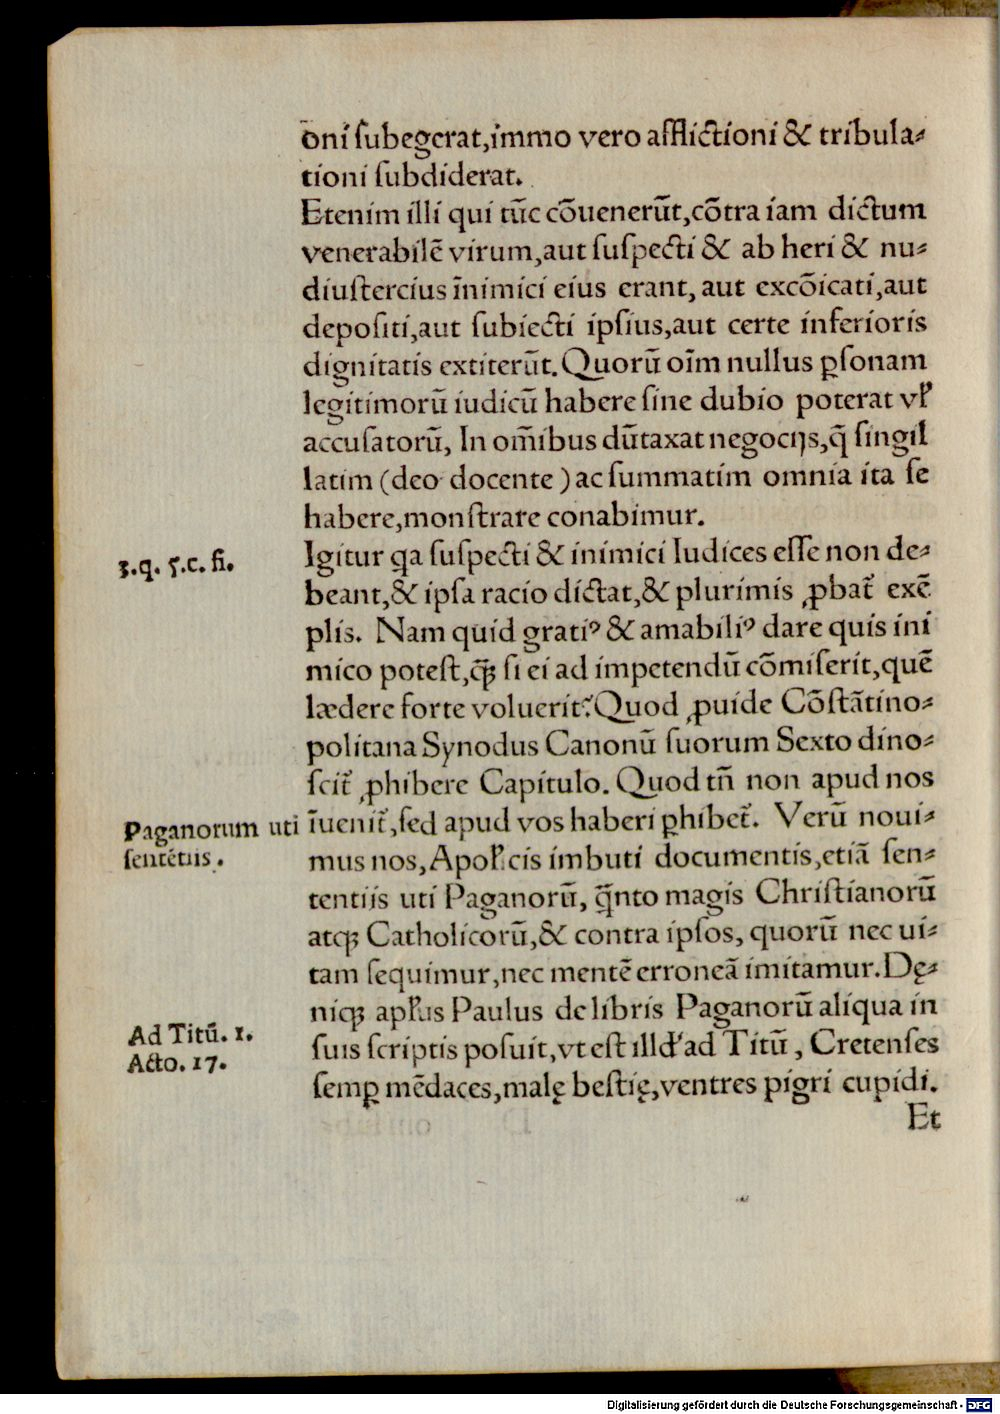 õni ſubegerat,immo vero afflictioni & tribula⸗
tioni ſubdiderat.
Etenim illi qui tũc cõuenerũt,cõtra iam dictum
venerabilẽ virum,aut ſuſpecti & ab heri & nu⸗
diuſtercius ĩnimici eius erant, aut excõicati,aut
depoſiti,aut ſubiecti ipſius,aut certe inferioris
dignitatis extiterũt. Quorũ oĩm nullus ꝑſonam
legitimorũ iudicũ habere ſine dubio poterat vꝉ
accuſatorũ, In om̃ibus dũtaxat negocijs,q̃ ſingil
latim (deo docente) ac ſummatim omnia ita ſe
habere,monſtrare conabimur.
3.q. 5.c. fi.
Igitur qa ſuſpecti & inimici Iudices eſſe non de⸗
beant,& ipſa racio dictat,& plurimis ꝓbat᷑ exẽ
plis. Nam quid gratiꝰ & amabiliꝰ dare quis ini
mico poteſt,q̃ꝫ ſi ei ad impetendũ cõmiſerit,quẽ
lædere forte voluerit? Quod ꝓuide Cõſtãtino⸗
politana Synodus Canonũ ſuorum Sexto dino⸗
ſcit᷑ ꝓhibere Capitulo. Quod tñ non apud nos
Paganorum uti
ſentẽtiis.
ĩuenit᷑,ſed apud vos haberi ꝑhibet᷑. Verũ noui⸗
mus nos, Apoꝉicis imbuti documentis,etiã ſen⸗
tentiis uti Paganorũ, q̃nto magis Chriſtianorũ
atqꝫ Catholicorũ,& contra ipſos, quorũ nec ui⸗
tam ſequimur,nec mentẽ erroneã imitamur. Dę⸗
niqꝫ apꝉus Paulus de libris Paganorũ aliqua in
Ad Titũ. 1.
Acto. 17.
ſuis ſcriptis poſuit,vt eſt illd' ad Titũ, Cretenſes
ſemꝑ mẽdaces,malę beſtię,ventres pigri cupidi.
Et
Digitalisierung gefördert durch die Deutsche Forschungsgemeinschaft - DFG